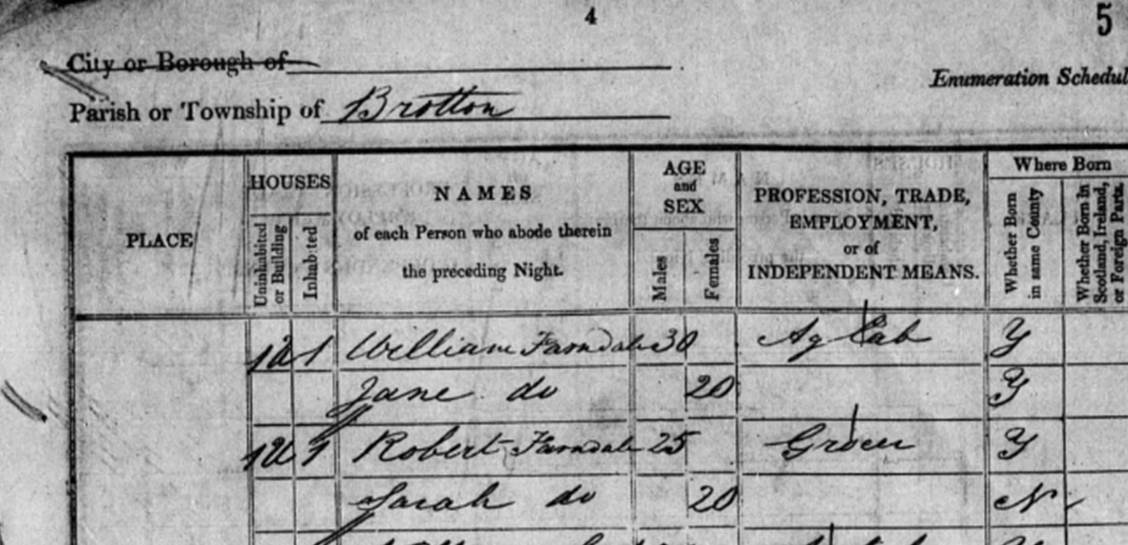 4
5
City or Borough of
Enumeration Schedul
Parish or Township of Brotton
PLACE
HOUSES
Uninhabited or Building
Inhabited
NAMES
of each Person who abode therein
the preceding Night.
AGE
and
SEX
Males
Females
PROFESSION, TRADE,
EMPLOYMENT,
or of
INDEPENDENT MEANS.
Where Born
Whether Born in same County
Whether Born in Scotland, Ireland, or Foreign Parts.
1 William Farndale 30 Ag Lab Y
Jane do 20 Y
1 Robert Farndale 25 Grocer Y
Sarah do 20 N